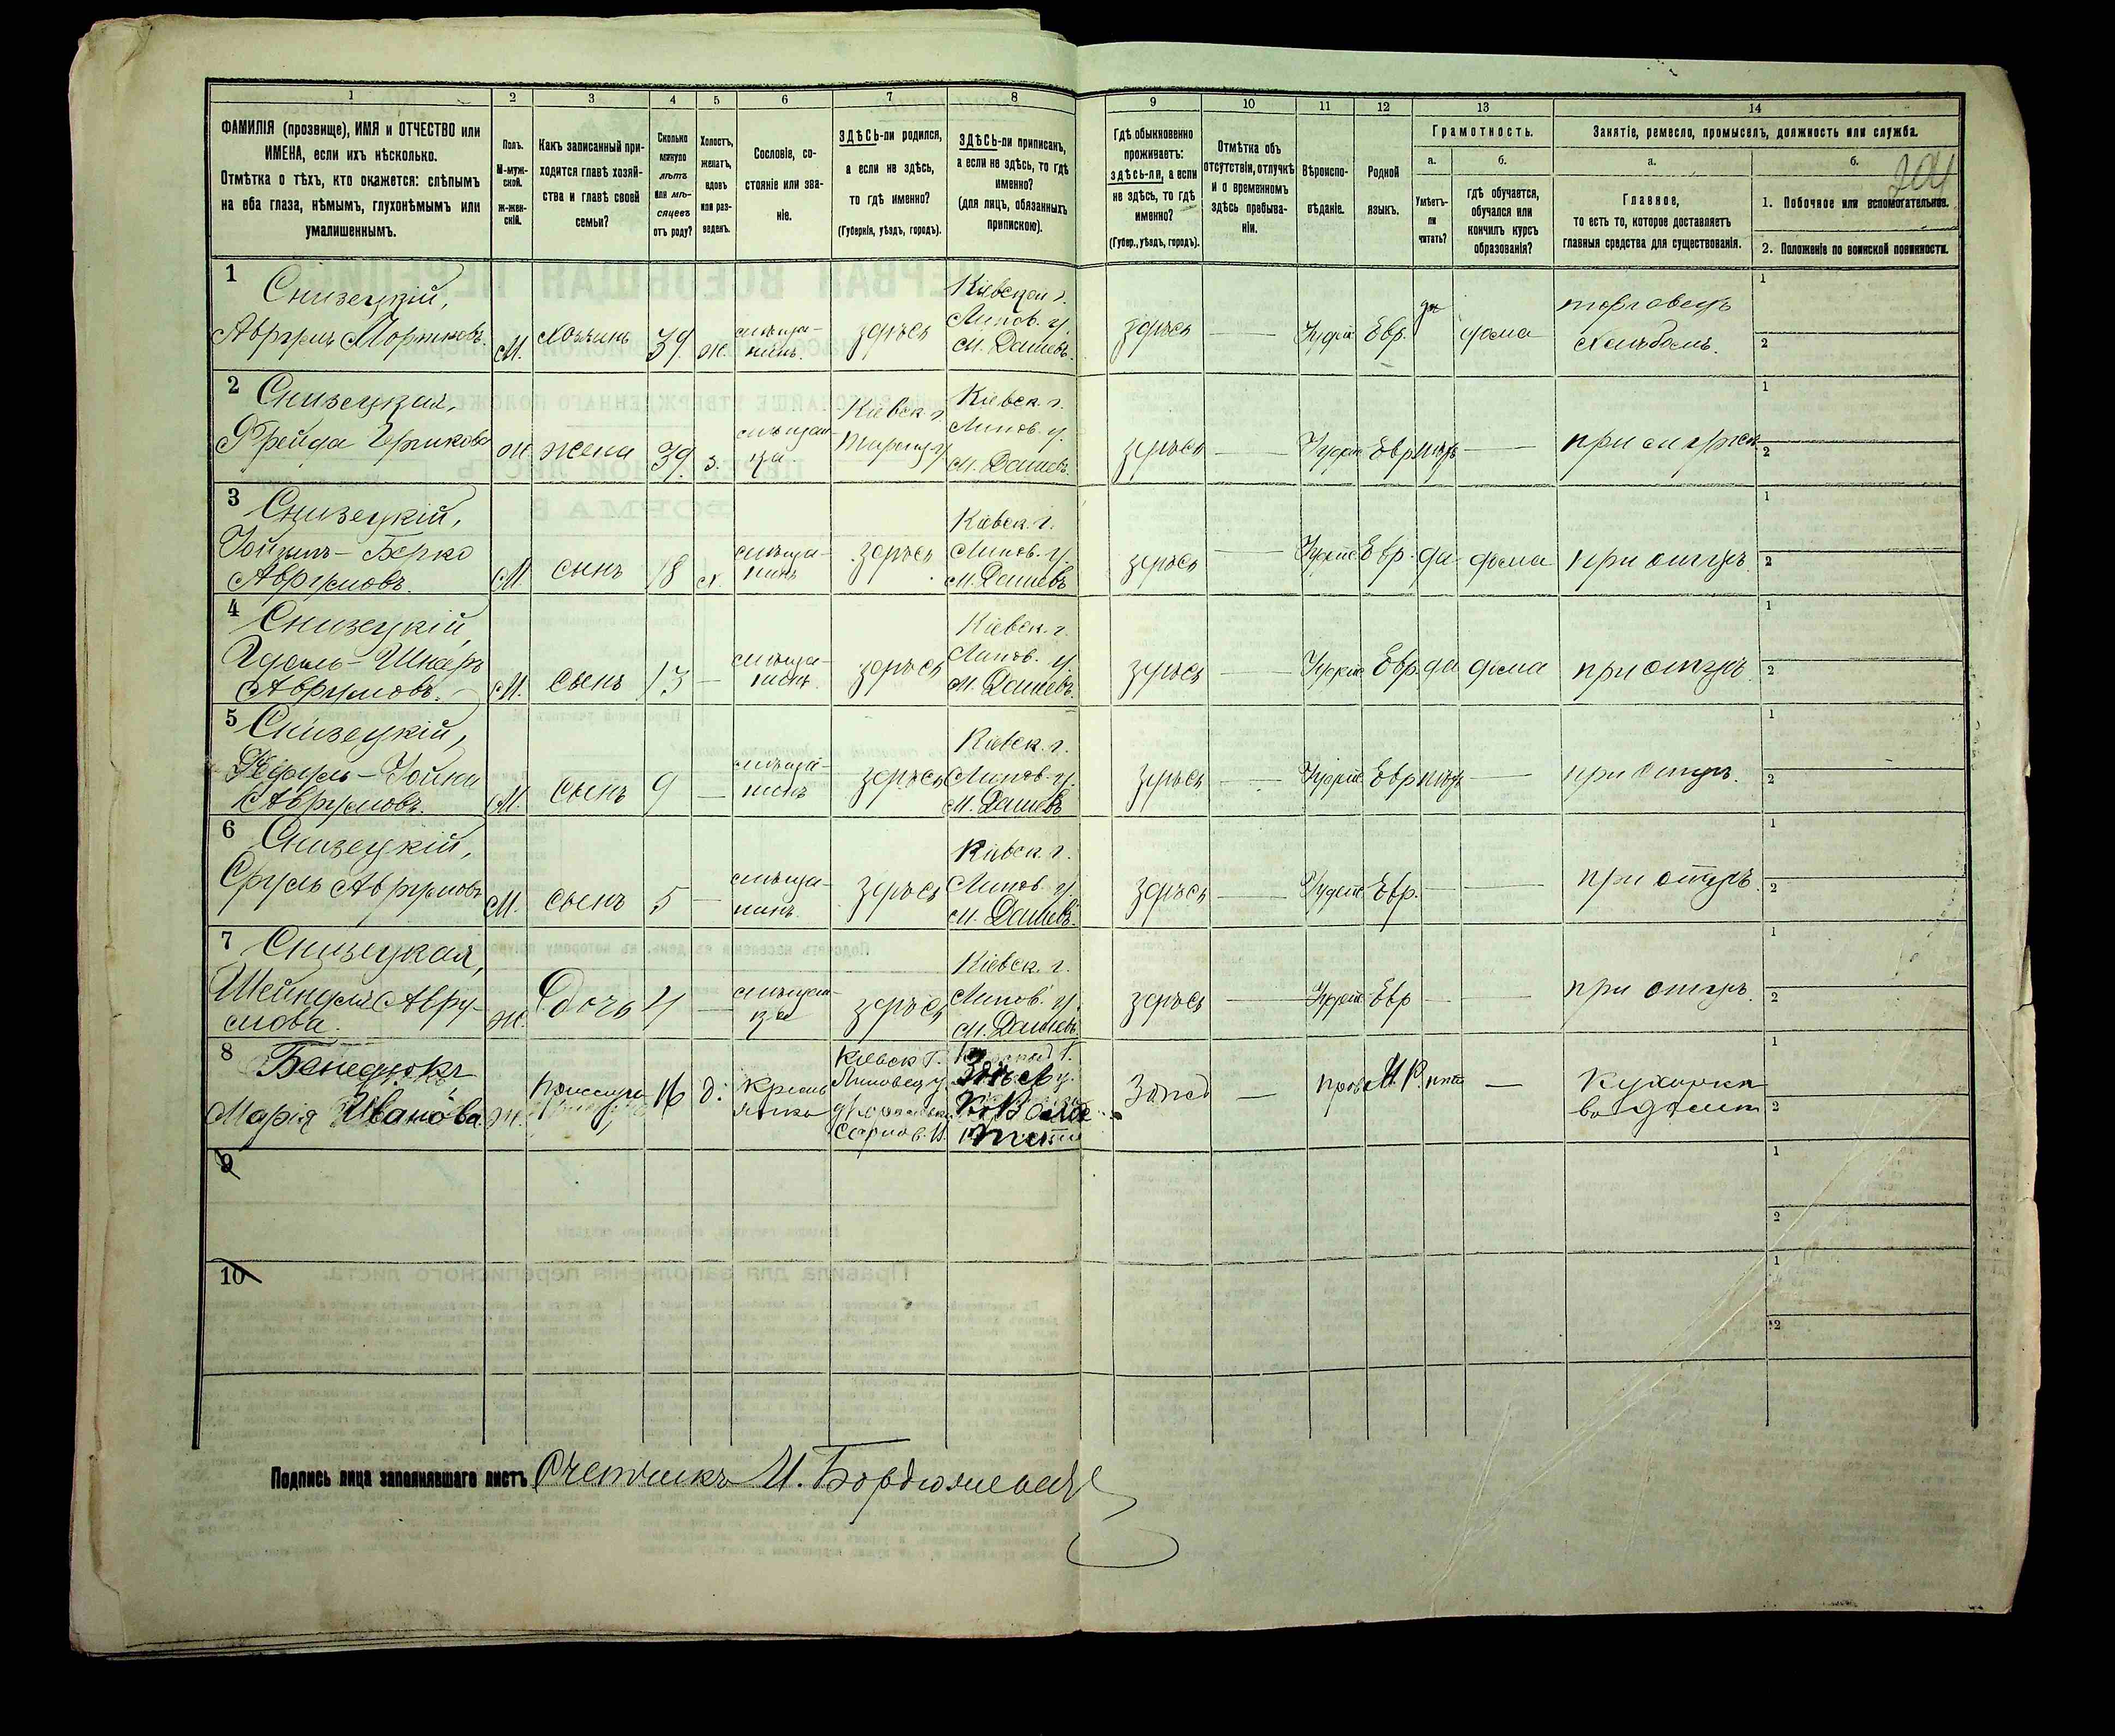 1 2 3 4 5 6 7 8 9 10 11 12 13 14
ФАМИЛІЯ (прозвище), ИМЯ и ОТЧЕСТВО или
ИМЕНА, если ихъ нѣсколько.
Отмѣтка о тѣхъ, кто окажется: слѣпымъ
на оба глаза, нѣмымъ, глухонѣмымъ или
умалишеннымъ.
Полъ.
М-муж-
ской.
Ж-жен-
скій.
Какъ записанный при-
ходится главѣ хозяй-
ства и главѣ своей
семьи?
Сколько
минуло
лѣтъ
или мѣ-
сяцевъ
отъ роду?
Холостъ,
женатъ,
вдовъ
или раз-
веденъ.
Сословіе, со-
стояніе или зва-
ніе.
ЗДѢСЬ-ли родился,
а если не здѣсь,
то гдѣ именно?
(Губернія, уѣздъ, городъ).
ЗДѢСЬ-ли приписанъ,
а если не здѣсь, то гдѣ
именно?
(для лицъ, обязанныхъ
припискою).
Гдѣ обыкновенно
проживаетъ:
здѣсь-ли, а если
не здѣсь, то гдѣ
именно?
(Губер., уѣздъ, городъ).
Отмѣтка объ
отсутствіи, отлучкѣ
и о временномъ
здѣсь пребыва-
ніи.
Вѣроиспо-
вѣданіе.
Родной
языкъ.
Грамотность.
а.
Умѣетъ-
ли
читать?
б.
гдѣ обучается,
обучался или
кончилъ курсъ
образованія?
Занятіе, ремесло, промыселъ, должность или служба.
а.
Главное,
то есть то, которое доставляетъ
главныя средства для существованія.
б.
1. Побочное или вспомогательное.
2. Положеніе по воинской повинности.
1 Снизецкій,
Аврумъ
М. хозяинъ 39 ж. мѣща-
нинъ. здѣсь
Кіевской г.
Липов. у.
м. Дашевъ.
здѣсь — Іудей. Евр. да дома
торговецъ
1
2
2 Снизецкая,
Фрейда
ж жена 39 з. мѣщан-
ка. Кіевск. г.
Кіевск. г.
Липов. у.
м. Дашевъ.
здѣсь — Іудей Евр нѣтъ — при мужѣ
1
2
3 Снизецкій,
Берко
Аврумовъ.
М. сынъ 18 х. мѣща-
нинъ здѣсь
Кіевск. г.
Липов. у.
м. Дашевъ
здѣсь — Іудей Евр. да дома при отцѣ.
1
2
4 Снизецкій,
Аврумовъ.
М. сынъ 13 — мѣща-
нинъ. здѣсь
Кіевск. г.
Липов. у.
м. Дашевъ.
здѣсь — Іудей Евр. да дома при отцѣ.
1
2
5 Снизецкій,
Аврумовъ.
М. сынъ 9 — мѣща-
нинъ здѣсь
Кіевск. г.
Липов. у.
м. Дашевъ
здѣсь — Іудей Евр нѣтъ — при отцѣ.
1
2
6 Снизецкій,
Сруль Аврумовъ
М. сынъ 5 — мѣща-
нинъ. здѣсь
Кіевск. г.
Липов. у.
м. Дашевъ.
здѣсь — Іудей Евр. — — при отцѣ.
1
2
7 Снизецкая,
Шейндля Авру-
мова.
ж. Дочь 4 — мѣщан-
ка здѣсь
Кіевск. г.
Липов. у.
м. Дашевъ.
здѣсь — Іудей Евр — — при отцѣ.
1
2
8
Марія Иванова.
ж. 16 д. Крестъ
янка
Кіевск. Г.
Липовец у.
— Прав М. Р. нѣт —
Кухарка
1
2
9
1
2
10
1
2
Подпись лица заполнявшаго листъ Счетчикъ И.